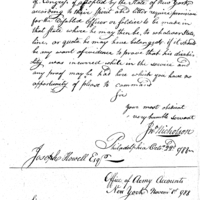 of Congress, & adopted by the State of New York
according to their spirit and letter require provision
for the disabled Officer or Soldier to be made in
that State where he may then be, to whatever State
line, or quota he may have belonged. If it should
be any want of evidence to prove that his disabi-
lity, was incurred while in the service and
any proof may be had here which you have an
opportunity of please to command
Sir
your most obedient
very humble servant
Jno. Nicholson
Philadelphia Octo. 28th 1788
Joseph Howell Esqr.
Office of Army Accounts
New York Novem. 5th 1788